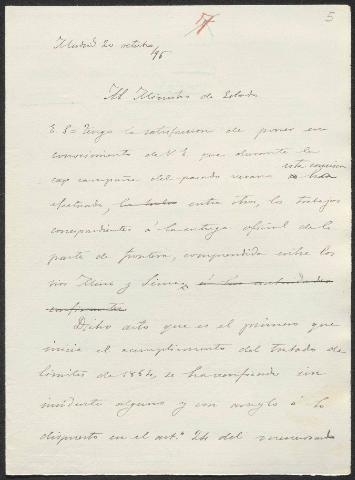 5
Madrid 20 octubre
/95
Al Ministro de Estado
E. S = Tengo la satisfaccion de poner en
conocimiento de V. E. que durante la
campaña del pasado verano esta comision
ha
efectuado, entre otros, los trabajos
correspondientes á la entrega oficial de la
parte de frontera, comprendida entre los
rios Miño y
Dicho acto que es el primero que
inicia el cumplimiento del tratado de
límites de 1864, se ha verificado sin
incidente alguno y con arreglo á lo
dispuesto en el art.º 24 del